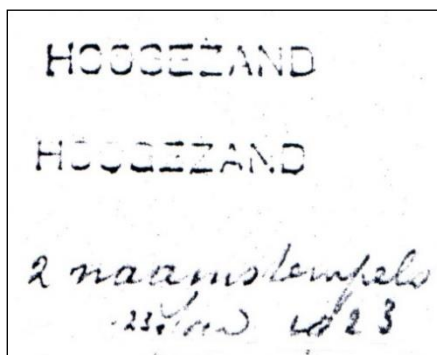 HOOGEZAND
HOOGEZAND
2 naamstempels
23 1923